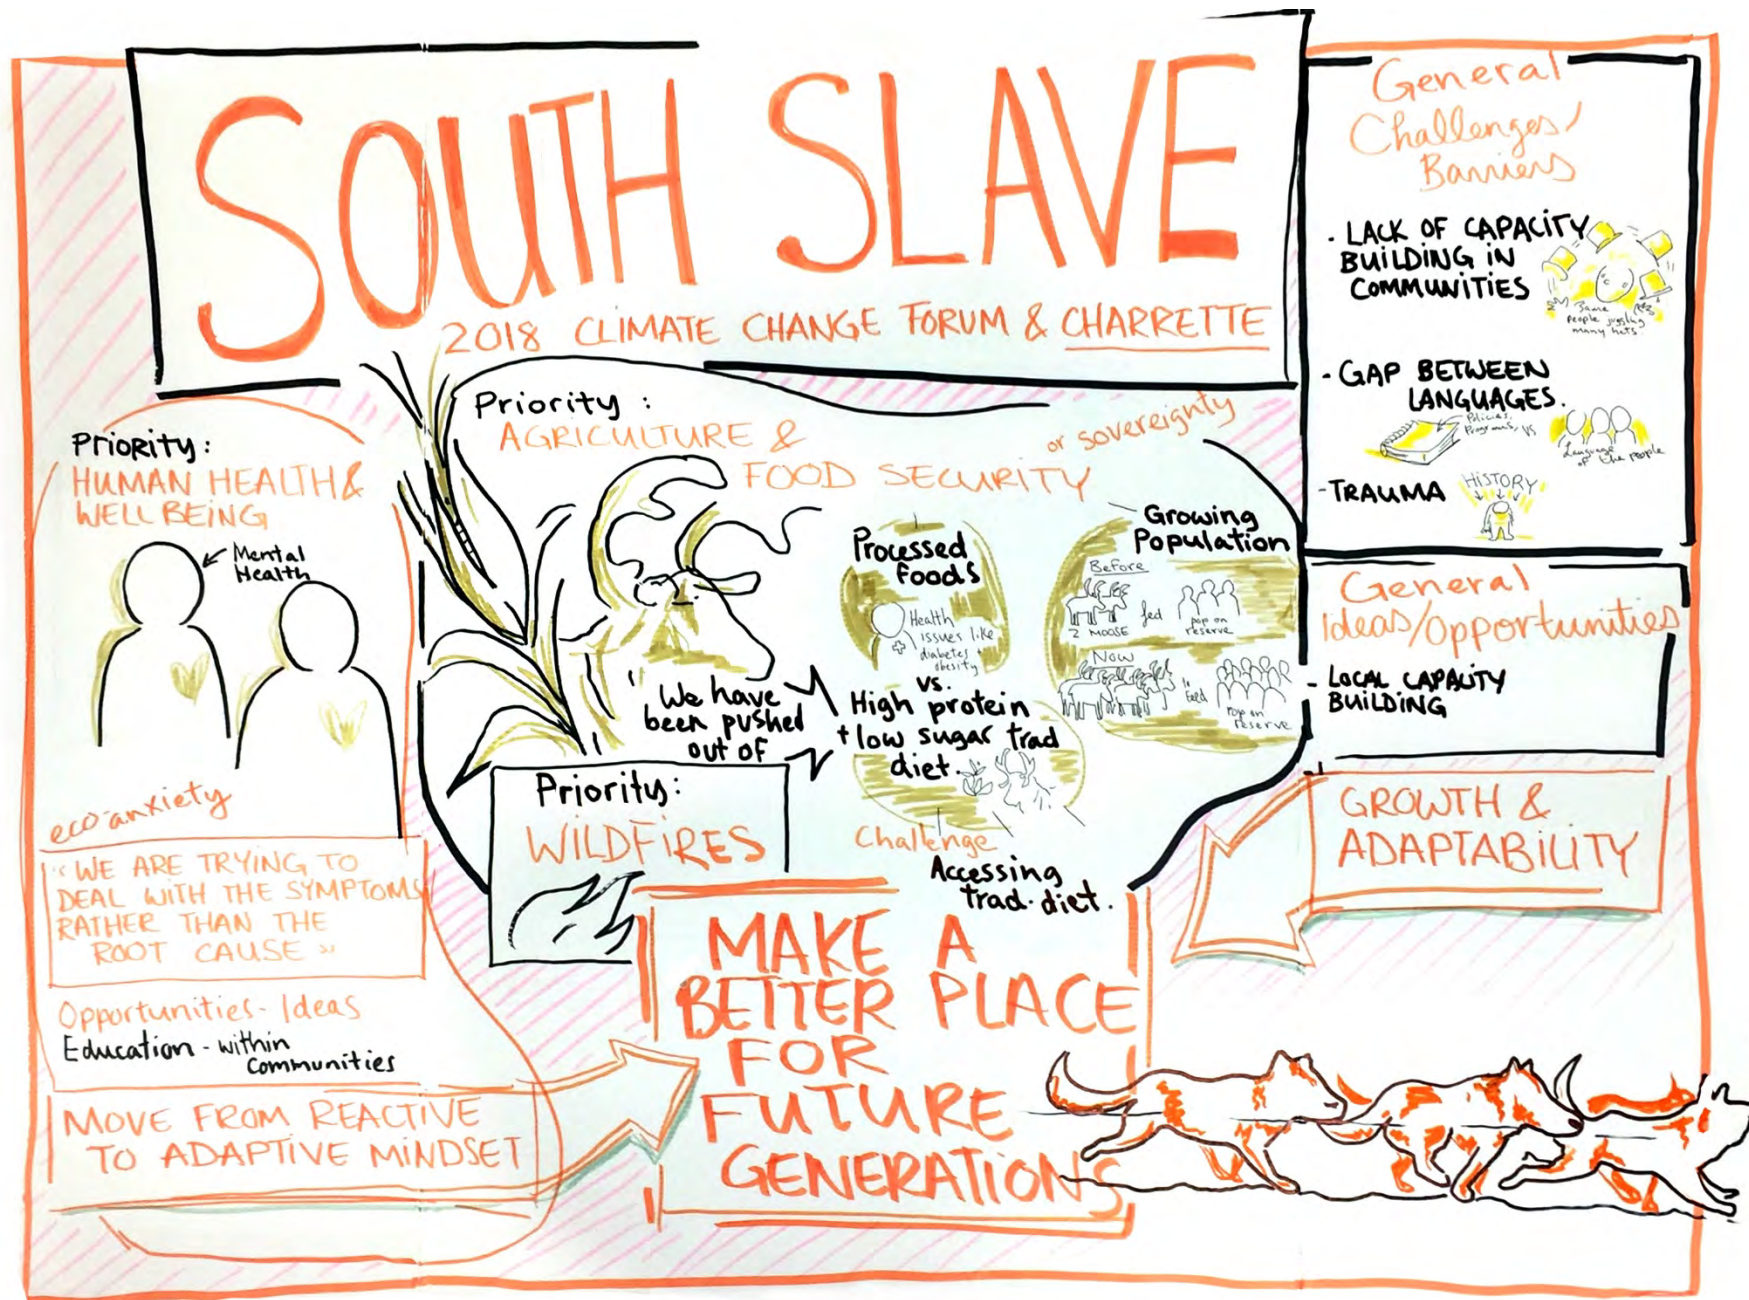 SOUTH SLAVE
2018 CLIMATE CHANGE FORUM & CHARRETTE
Priority:
HUMAN HEALTH &
WELL BEING
Mental
Health
eco-anxiety
"WE ARE TRYING TO
DEAL WITH THE SYMPTOMS
RATHER THAN THE
ROOT CAUSE"
Opportunities - Ideas
Education - within
Communities
MOVE FROM REACTIVE
TO ADAPTIVE MINDSET
Priority:
AGRICULTURE &
FOOD SECURITY
or sovereignty
"We have
been pushed
out of
Processed
foods
Health
issues like
diabetes +
obesity
vs.
High protein
+ low sugar trad
diet.
Challenge
Accessing
trad. diet.
Growing
Population
Before
2 MOOSE
fed
pop on
reserve
Now
to
feed
Pop on
reserve
Priority:
WILDFIRES
MAKE A
BETTER PLACE
FOR
FUTURE
GENERATIONS
General
Challenges/
Barriers
- LACK OF CAPACITY
BUILDING IN
COMMUNITIES
Same
people juggling
many hats
- GAP BETWEEN
LANGUAGES.
Policies,
Programs, vs
Language
of the people
- TRAUMA
HISTORY
General
Ideas/Opportunities
- LOCAL CAPACITY
BUILDING
GROWTH &
ADAPTABILITY